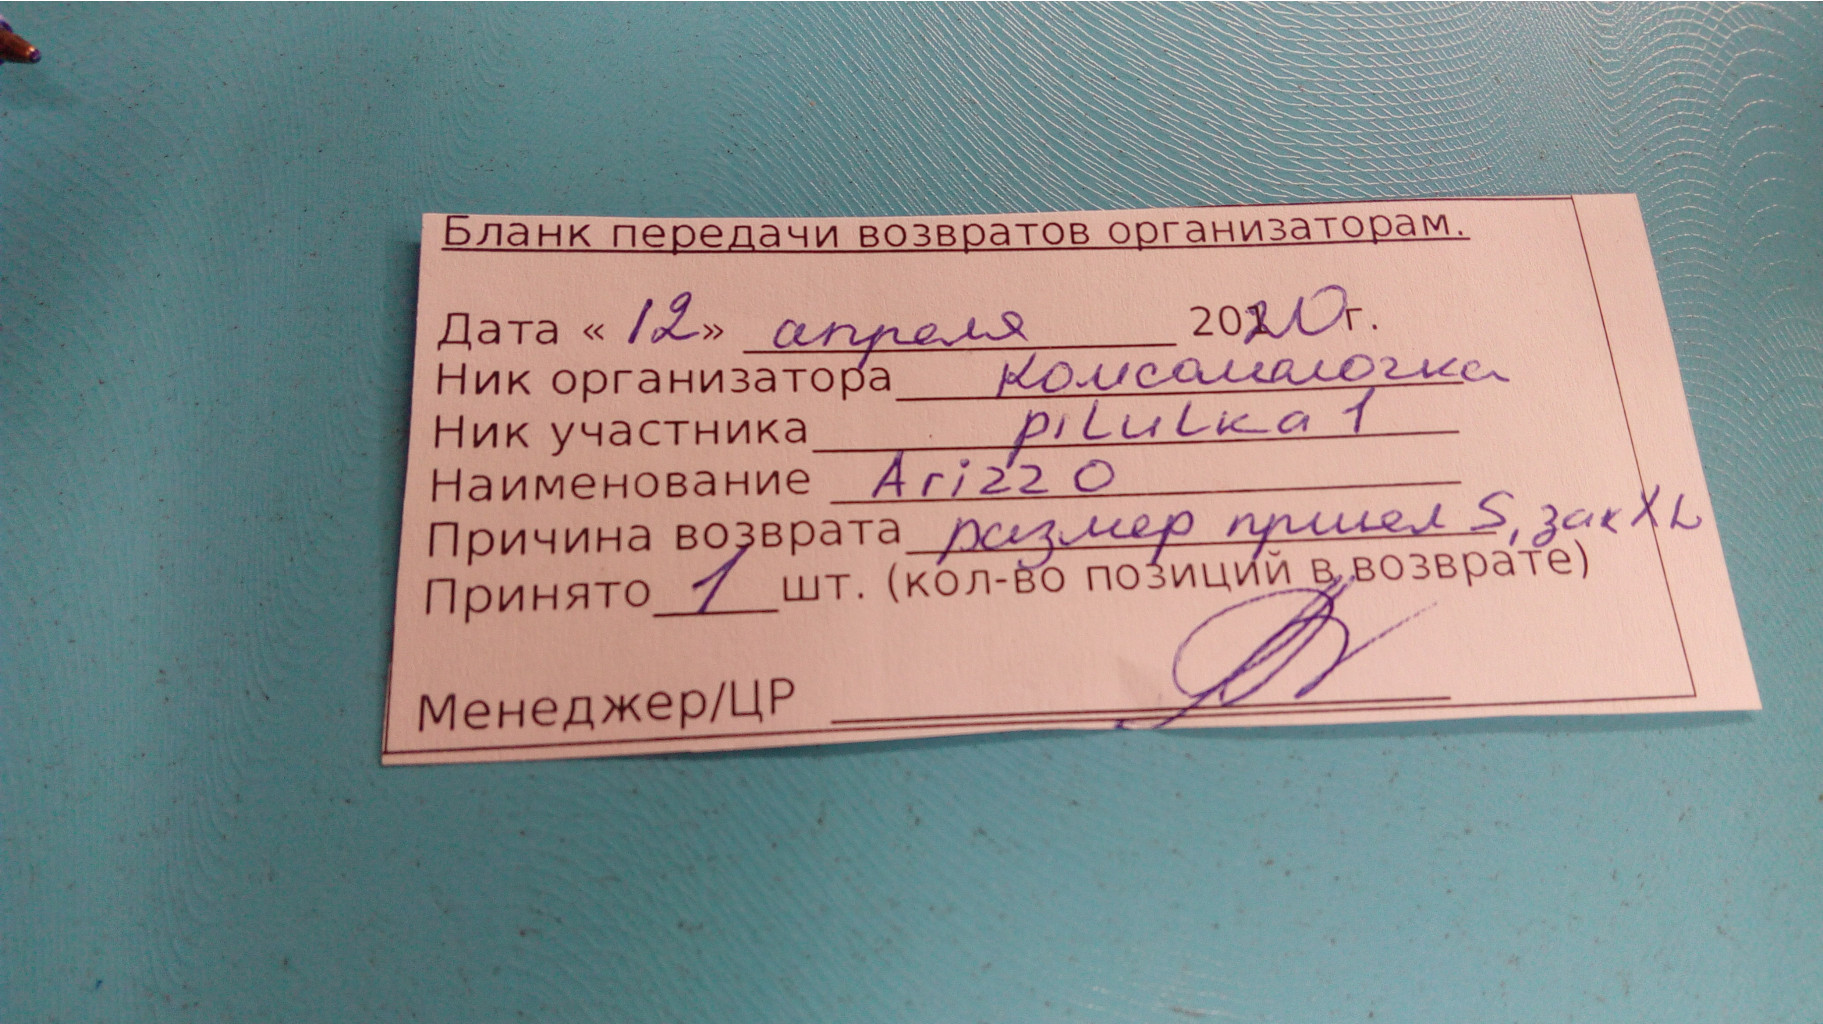 Бланк передачи возвратов организаторам.
Дата « 12 » апреля 2020г.
Ник организатора Комсомалочка
Ник участника piLuLka 1
Наименование Arizzo
Причина возврата размер пришел S, зак XL
Принято 1 шт. (кол-во позиций в возврате)
Менеджер/ЦР